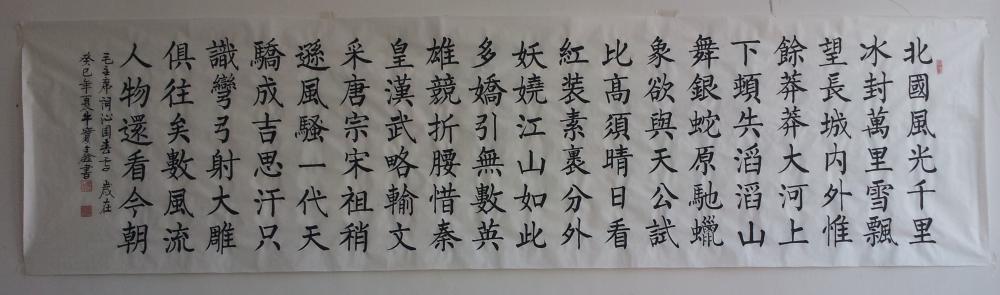 北國風光千里
冰封萬里雪飄
望長城內外惟
餘莽莽大河上
下頓失滔滔山
舞銀蛇原馳蠟
象欲與天公試
比高須晴日看
紅装素裹分外
妖嬈江山如此
多嬌引無數英
雄競折腰惜秦
皇漢武略輸文
采唐宗宋祖稍
遜風騷一代天
驕成吉思汗只
識彎弓射大雕
俱往矣數風流
人物還看今朝
毛主席詞沁園春雪 歲在
癸巳年夏牛寶書